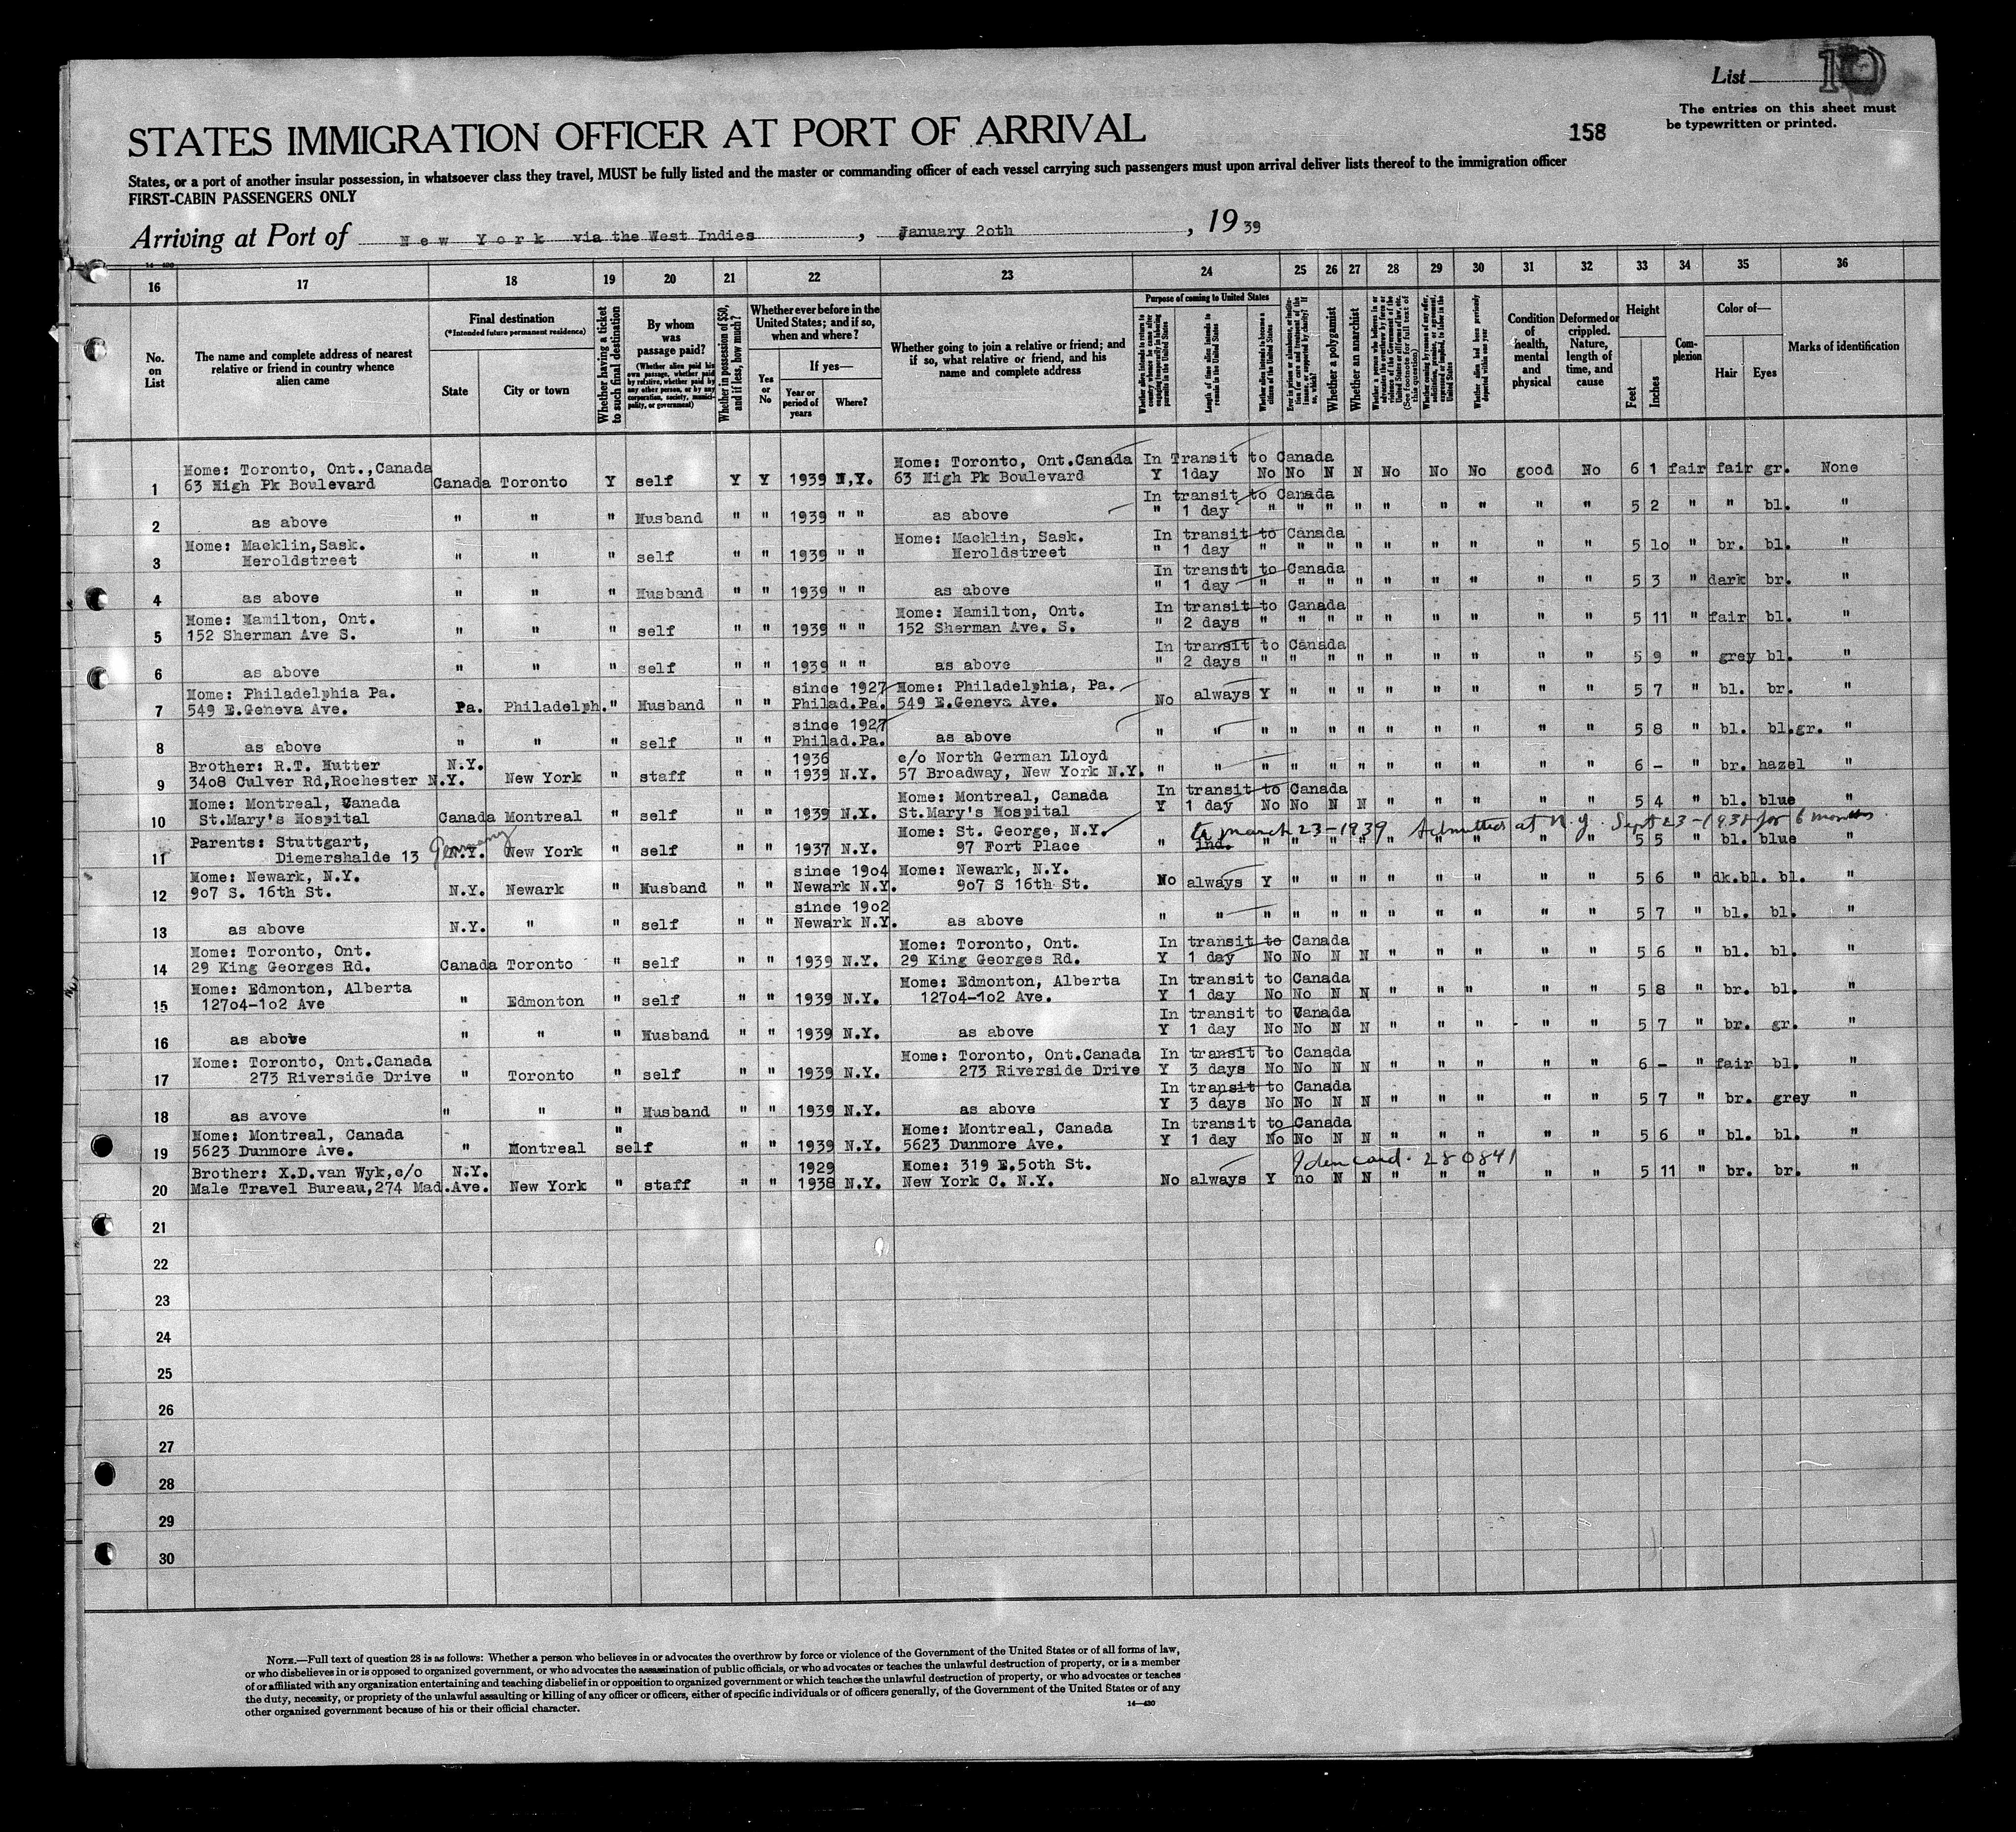 List 10
The entries on this sheet must
be typewritten or printed.
STATES IMMIGRATION OFFICER AT PORT OF ARRIVAL
158
States, or a port of another insular possession, in whatsoever class they travel, MUST be fully listed and the master or commanding officer of each vessel carrying such passengers must upon arrival deliver lists thereof to the immigration officer
FIRST-CABIN PASSENGERS ONLY
Arriving at Port of New York via the West Indies, January 20th, 1939
16 17 18 19 20 21 22 23 24 25 26 27 28 29 30 31 32 33 34 35 36
No. on List
The name and complete address of nearest relative or friend in country whence alien came
Final destination
(*Intended future permanent residence)
State
City or town
Whether having a ticket to such final destination
By whom was passage paid?
(Whether alien paid his own passage, whether paid by relative, whether paid by any other person, or by any corporation, society, municipality, or government)
Whether in possession of $50, and if less, how much?
Whether ever before in the United States; and if so, when and where?
Yes or No
If yes—
Year or period of years
Where?
Whether going to join a relative or friend; and if so, what relative or friend, and his name and complete address
Purpose of coming to United States
Length of time alien intends to remain in the United States
Whether alien intends to become a citizen of the United States
Whether a polygamist
Whether an anarchist
Whether alien had been previously deported within one year
Condition of health, mental and physical
Deformed or crippled. Nature, length of time, and cause
Height
Feet
Inches
Complexion
Color of—
Hair
Eyes
Marks of identification
Home: Toronto, Ont.,Canada Home: Toronto, Ont.Canada In Transit to Canada
1 63 High Pk Boulevard Canada Toronto Y self Y Y 1939 N.Y. 63 High Pk Boulevard Y 1day No No N N No No No good No 6 1 fair fair gr. None
In transit to Canada
2 as above " " " Husband " " 1939 " " as above " 1 day " " " " " " " " " 5 2 " " bl. "
Home: Macklin,Sask. Home: Macklin, Sask. In transit to Canada
3 Heroldstreet " " " self " " 1939 " " Heroldstreet " 1 day " " " " " " " " " 5 10 " br. bl. "
In transit to Canada
4 as above " " " Husband " " 1939 " " as above " 1 day " " " " " " " " " 5 3 " dark br. "
Home: Hamilton, Ont. Home: Hamilton, Ont. In transit to Canada
5 152 Sherman Ave S. " " " self " " 1939 " " 152 Sherman Ave. S. " 2 days " " " " " " " " " 5 11 " fair bl. "
In transit to Canada
6 as above " " " self " " 1939 " " as above " 2 days " " " " " " " " " 5 9 " grey bl. "
Home: Philadelphia Pa. since 1927 Home: Philadelphia, Pa.
7 549 E.Geneva Ave. Pa. Philadelph. " Husband " " Philad.Pa. 549 E.Geneva Ave. No always Y " " " " " " " " 5 7 " bl. br. "
since 1927
8 as above " " " self " " Philad.Pa. as above " " " " " " " " " " " 5 8 " bl. bl.gr. "
Brother: R.T. Hutter N.Y. 1936 c/o North German Lloyd
9 3408 Culver Rd,Rochester N.Y. New York " staff " " 1939 N.Y. 57 Broadway, New York N.Y. " " " " " " " " " " " 6 - " br. hazel "
Home: Montreal, Canada Home: Montreal, Canada In transit to Canada
10 St.Mary's Hospital Canada Montreal " self " " 1939 N.Y. St.Mary's Hospital Y 1 day No No N N " " " " " 5 4 " bl. blue "
to march 23-1939 Admitted at N.Y. Sept 23-1938 for 6 months.
Parents: Stuttgart, Germany Home: St. George, N.Y.
11 Diemershalde 13 N.Y. New York " self " " 1937 N.Y. 97 Fort Place " ind. " " " " " " " " " 5 5 " bl. blue "
Home: Newark, N.Y. since 1904 Home: Newark, N.Y.
12 907 S. 16th St. N.Y. Newark " Husband " " Newark N.Y. 907 S 16th St. No always Y " " " " " " " " 5 6 " dk.bl. bl. "
since 1902
13 as above N.Y. " " self " " Newark N.Y. as above " " " " " " " " " " " 5 7 " bl. bl. "
Home: Toronto, Ont. Home: Toronto, Ont. In transit to Canada
14 29 King Georges Rd. Canada Toronto " self " " 1939 N.Y. 29 King Georges Rd. Y 1 day No No N N " " " " " 5 6 " bl. bl. "
Home: Edmonton, Alberta Home: Edmonton, Alberta In transit to Canada
15 12704-102 Ave " Edmonton " self " " 1939 N.Y. 12704-102 Ave. Y 1 day No No N N " " " " " 5 8 " br. bl. "
In transit to Canada
16 as above " " " Husband " " 1939 N.Y. as above Y 1 day No No N N " " " " " 5 7 " br. gr. "
Home: Toronto, Ont.Canada Home: Toronto, Ont.Canada In transit to Canada
17 273 Riverside Drive " Toronto " self " " 1939 N.Y. 273 Riverside Drive Y 3 days No No N N " " " " " 6 - " fair bl. "
In transit to Canada
18 as avove " " " Husband " " 1939 N.Y. as above Y 3 days No No N N " " " " " 5 7 " br. grey "
Home: Montreal, Canada " Home: Montreal, Canada In transit to Canada
19 5623 Dunmore Ave. " Montreal self " " 1939 N.Y. 5623 Dunmore Ave. Y 1 day No No N N " " " " " 5 6 " bl. bl. "
Brother: X.D.van Wyk,c/o N.Y. 1929 Home: 319 E.50th St. Iden card. 280841
20 Male Travel Bureau,274 Mad.Ave. New York " staff " " 1938 N.Y. New York C. N.Y. No always Y no N N " " " " " 5 11 " br. br. "
21
22
23
24
25
26
27
28
29
30
NOTE.—Full text of question 28 is as follows: Whether a person who believes in or advocates the overthrow by force or violence of the Government of the United States or of all forms of law,
or who disbelieves in or is opposed to organized government, or who advocates the assassination of public officials, or who advocates or teaches the unlawful destruction of property, or is a member
of or affiliated with any organization entertaining and teaching disbelief in or opposition to organized government or which teaches the unlawful destruction of property, or who advocates or teaches
the duty, necessity, or propriety of the unlawful assaulting or killing of any officer or officers, either of specific individuals or of officers generally, of the Government of the United States or of any
other organized government because of his or their official character.
14—430